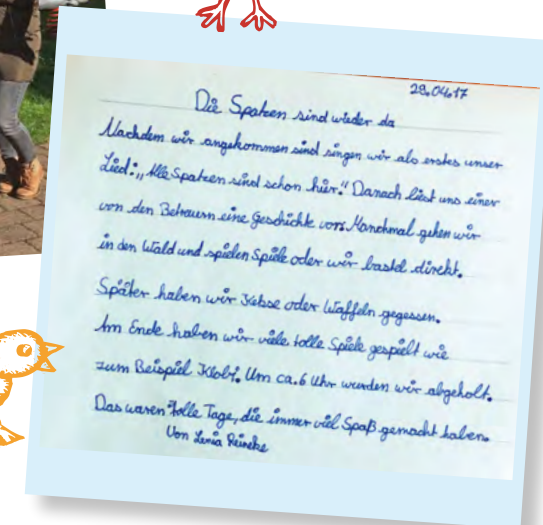 28.04.17
Die Spatzen sind wieder da
Nachdem wir angekommen sind singen wir als erstes unser
Lied: „Alle Spatzen sind schon hier." Danach liest uns einer
von den Betreuern eine Geschichte vor. Manchmal gehen wir
in den Wald und spielen Spiele oder wir bastel direkt.
Später haben wir Kekse oder Waffeln gegessen.
Am Ende haben wir viele tolle Spiele gespielt wie
zum Beispiel Klobi. Um ca. 6 Uhr wurden wir abgeholt.
Das waren tolle Tage, die immer viel Spaß gemacht haben.
Von Lenia Reineke